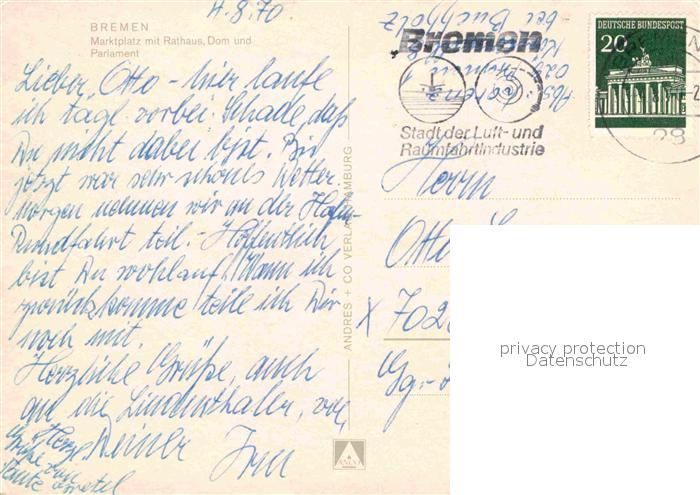 4.8.70.
BREMEN
Marktplatz mit Rathaus, Dom und
Parlament
Lieber Otto - hier laufe
ich tägl. vorbei. Schade daß
Du nicht dabei bist. Bis
jetzt war sehr schönes Wetter.
morgen nehmen wir an der Hafen
Rundfahrt teil. - Hoffentlich
bist Du wohlauf. Wann ich
zurückkomme teile ich Dir
noch mit.
Herzliche Grüße, auch
an die Lindenthaler, von
Deiner Irm
Herzl.
Grüße
Tante
ANDRES + CO VERLAG HAMBURG
bei Buchholz
Bremen
Stadt der Luft- und
Raumfahrtindustrie
DEUTSCHE BUNDESPOST
20
28
Herrn
Otto
X 702
privacy protection
Datenschutz